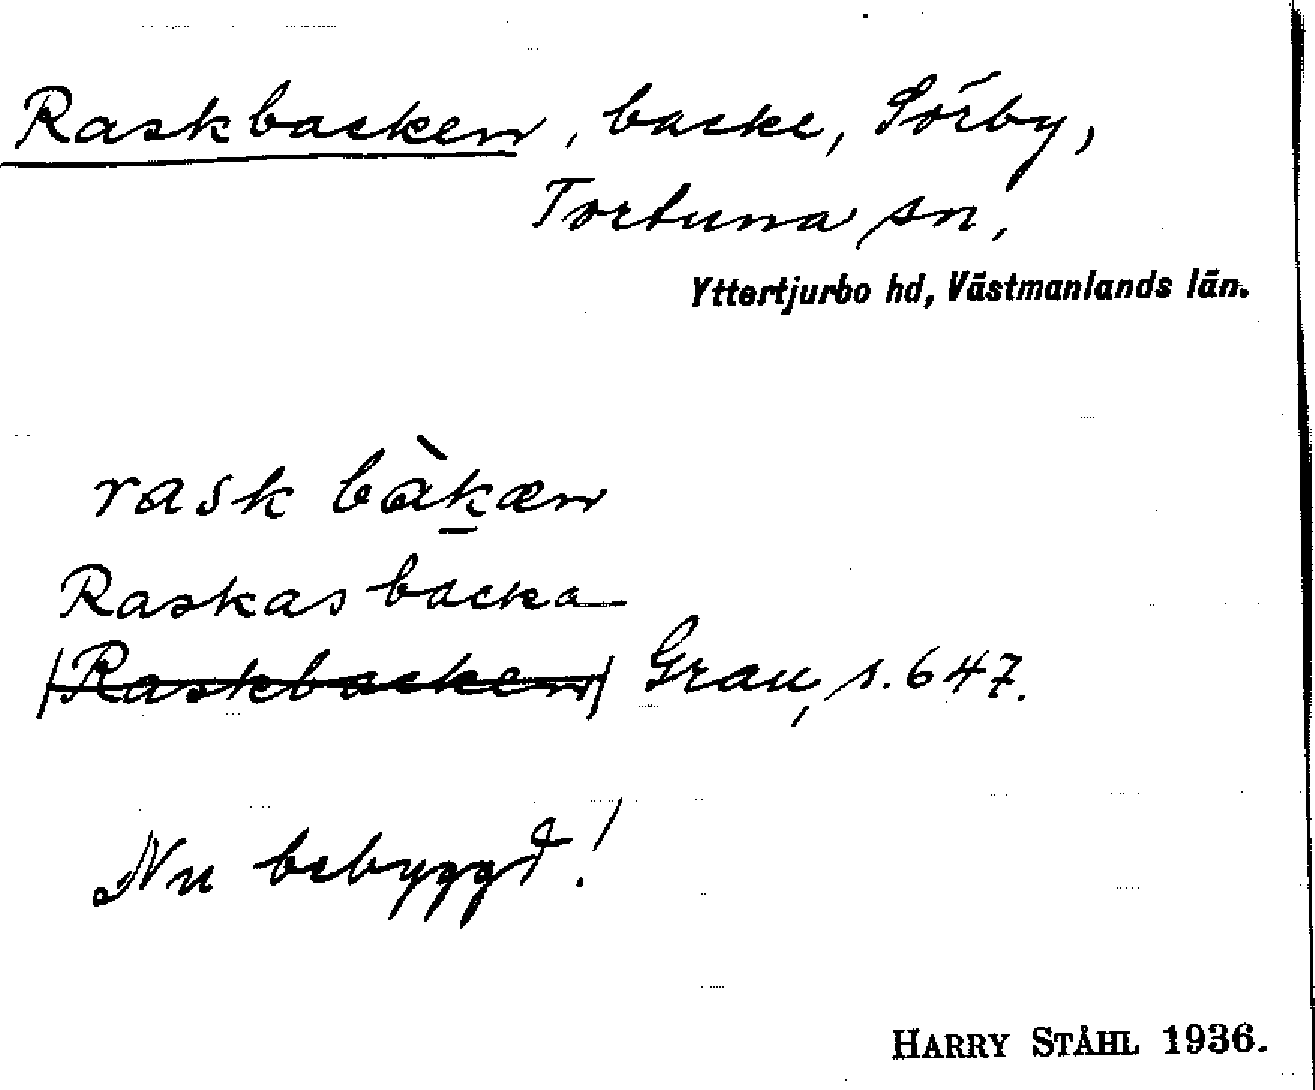 Raskbacken, backe, Sörby,
Tortuna sn,
Yttertjurbo hd, Västmanlands län.
rask bàk̠æn
Raskas backa
(Raskbacken) Grau, s. 647.
Nu bebyggd!
HARRY STÅHL 1936.